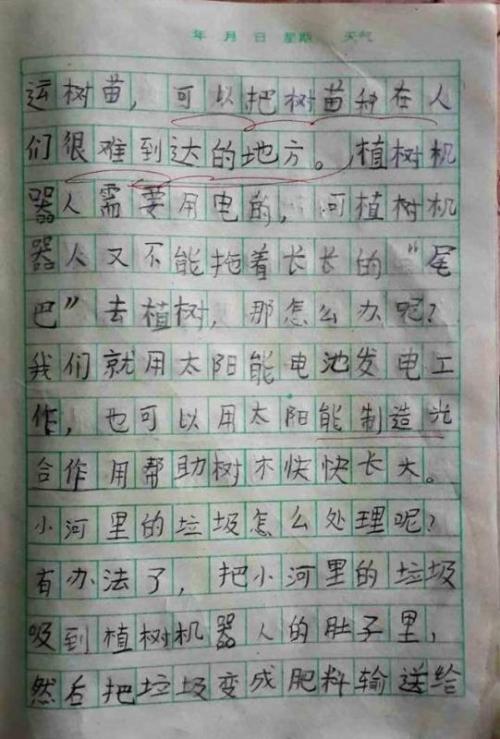 年 月 日 星期 天气
运树苗，可以把树苗种在人
们很难到达的地方。植树机
器人需要用电的，可植树机
器人又不能拖着长长的“尾
巴”去植树，那怎么办呢？
我们就用太阳能电池发电工
作，也可以用太阳能制造光
合作用帮助树木快快长大。
小河里的垃圾怎么处理呢？
有办法了，把小河里的垃圾
吸到植树机器人的肚子里，
然后把垃圾变成肥料输送给